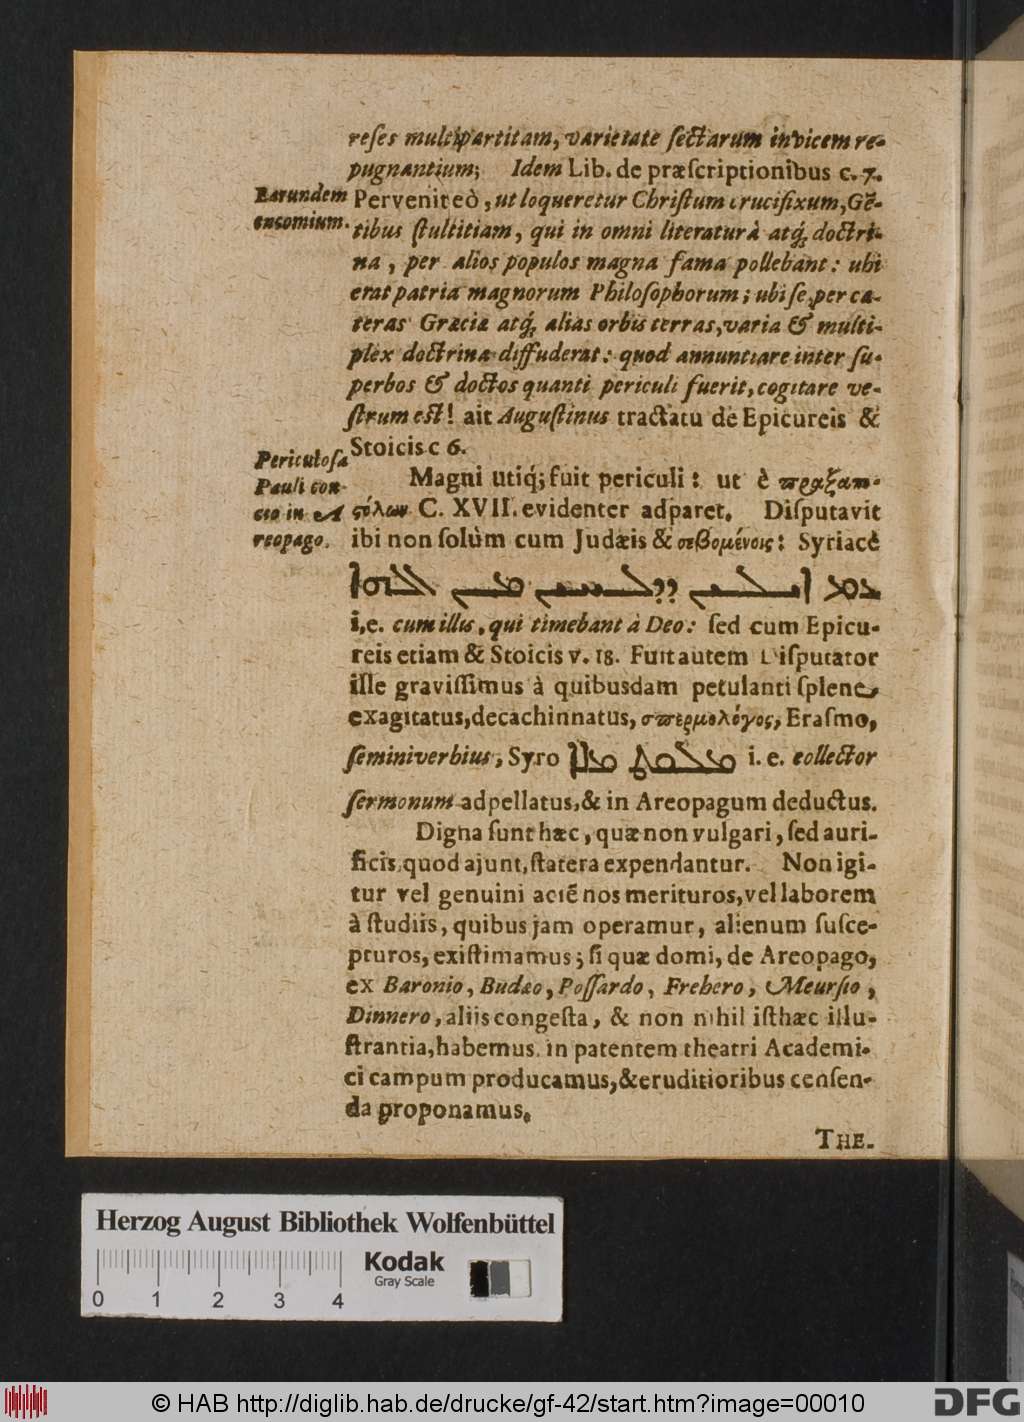 reſes multipartitam, varietate ſectarum invicem re-
pugnantium; Idem Lib. de præſcriptionibus c. 7.
Earundem
encomium.
Pervenit eò, ut loqueretur Chriſtum crucifixum, Gẽ-
tibus ſtultitiam, qui in omni literaturâ atq́; doctri-
na, per alios populos magna fama pollebant: ubi
erat patria magnorum Philoſophorum; ubi ſe per ca-
teras Græciæ atq́; alias orbis terras, varia & multi-
plex doctrina diffuderat: quod annuntiare inter ſu-
perbos & doctos quanti periculi fuerit, cogitare ve-
ſtrum eſt! ait Auguſtinus tractatu de Epicureis &
Stoicis c 6.
Periculoſa
Pauli con-
cio in A
reopago.
Magni utiq́; fuit periculi: ut è πραξαπο-
ςόλων C. XVII. evidenter adparet. Diſputavit
ibi non ſolùm cum Judæis & σεβομένοις: Syriacè
i.e. cum illis, qui timebant à Deo: ſed cum Epicu-
reis etiam & Stoicis v. 18. Fuit autem Diſputator
ille graviſſimus à quibusdam petulanti ſplene
exagitatus, decachinnatus, σπερμολόγος, Eraſmo,
ſeminiverbius, Syro i. e. collector
ſermonum adpellatus, & in Areopagum deductus.
Digna ſunt hæc, quæ non vulgari, ſed auri-
ficis, quod ajunt, ſtatera expendantur. Non igi-
tur vel genuini aciẽ nos merituros, vel laborem
à ſtudiis, quibus jam operamur, alienum ſuſce-
pturos, exiſtimamus; ſi quæ domi, de Areopago,
ex Baronio, Budæo, Poſſardo, Frehero, Meurſio,
Dinnero, aliis congeſta, & non nihil iſthæc illu-
ſtrantia, habemus in patentem theatri Academi-
ci campum producamus, & eruditioribus cenſen-
da proponamus.
THE-
Herzog August Bibliothek Wolfenbüttel
Kodak
Gray Scale
0 1 2 3 4
© HAB http://diglib.hab.de/drucke/gf-42/start.htm?image=00010
DFG